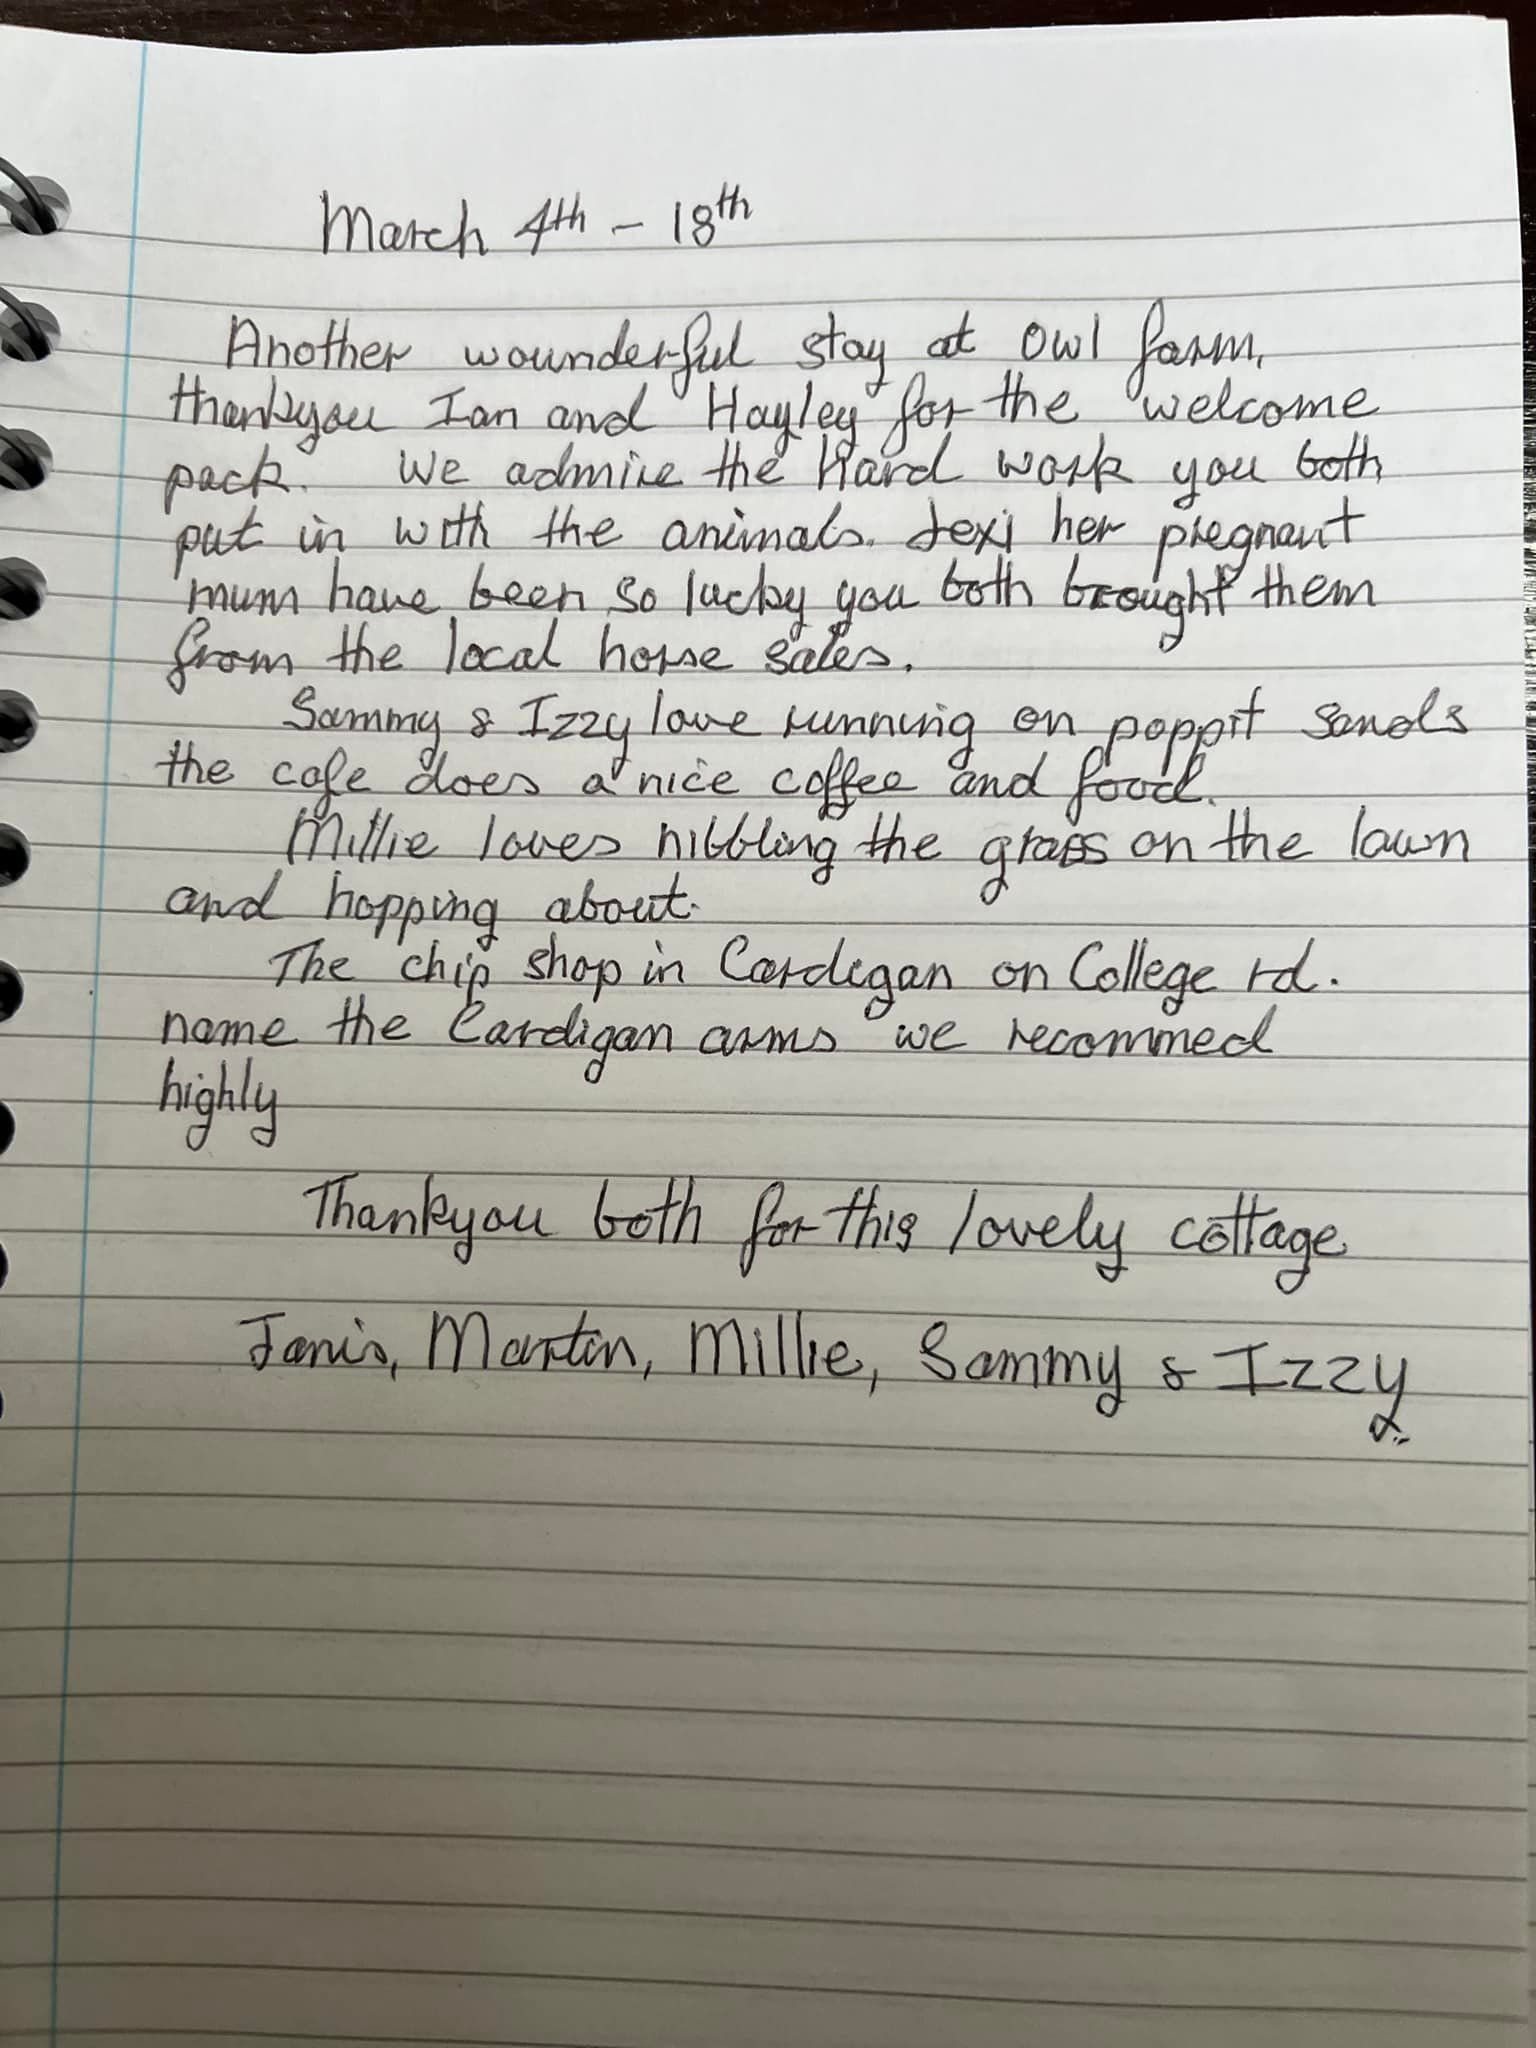 March 4th - 18th
Another wounderful stay at Owl farm,
thankyou Ian and Hayley for the welcome
pack. We admire the hard work you both
put in with the animals. her pregnant
mum have been so lucky you both brought them
from the local horse sales.
Sammy & Izzy love running on poppit sands
the cafe does a nice coffee and food.
Millie loves nibbling the grass on the lawn
and hopping about.
The chip shop in Cardigan on College rd.
name the Cardigan arms we recommed
highly
Thankyou both for this lovely cottage
Janis, Martin, Millie, Sammy & Izzy